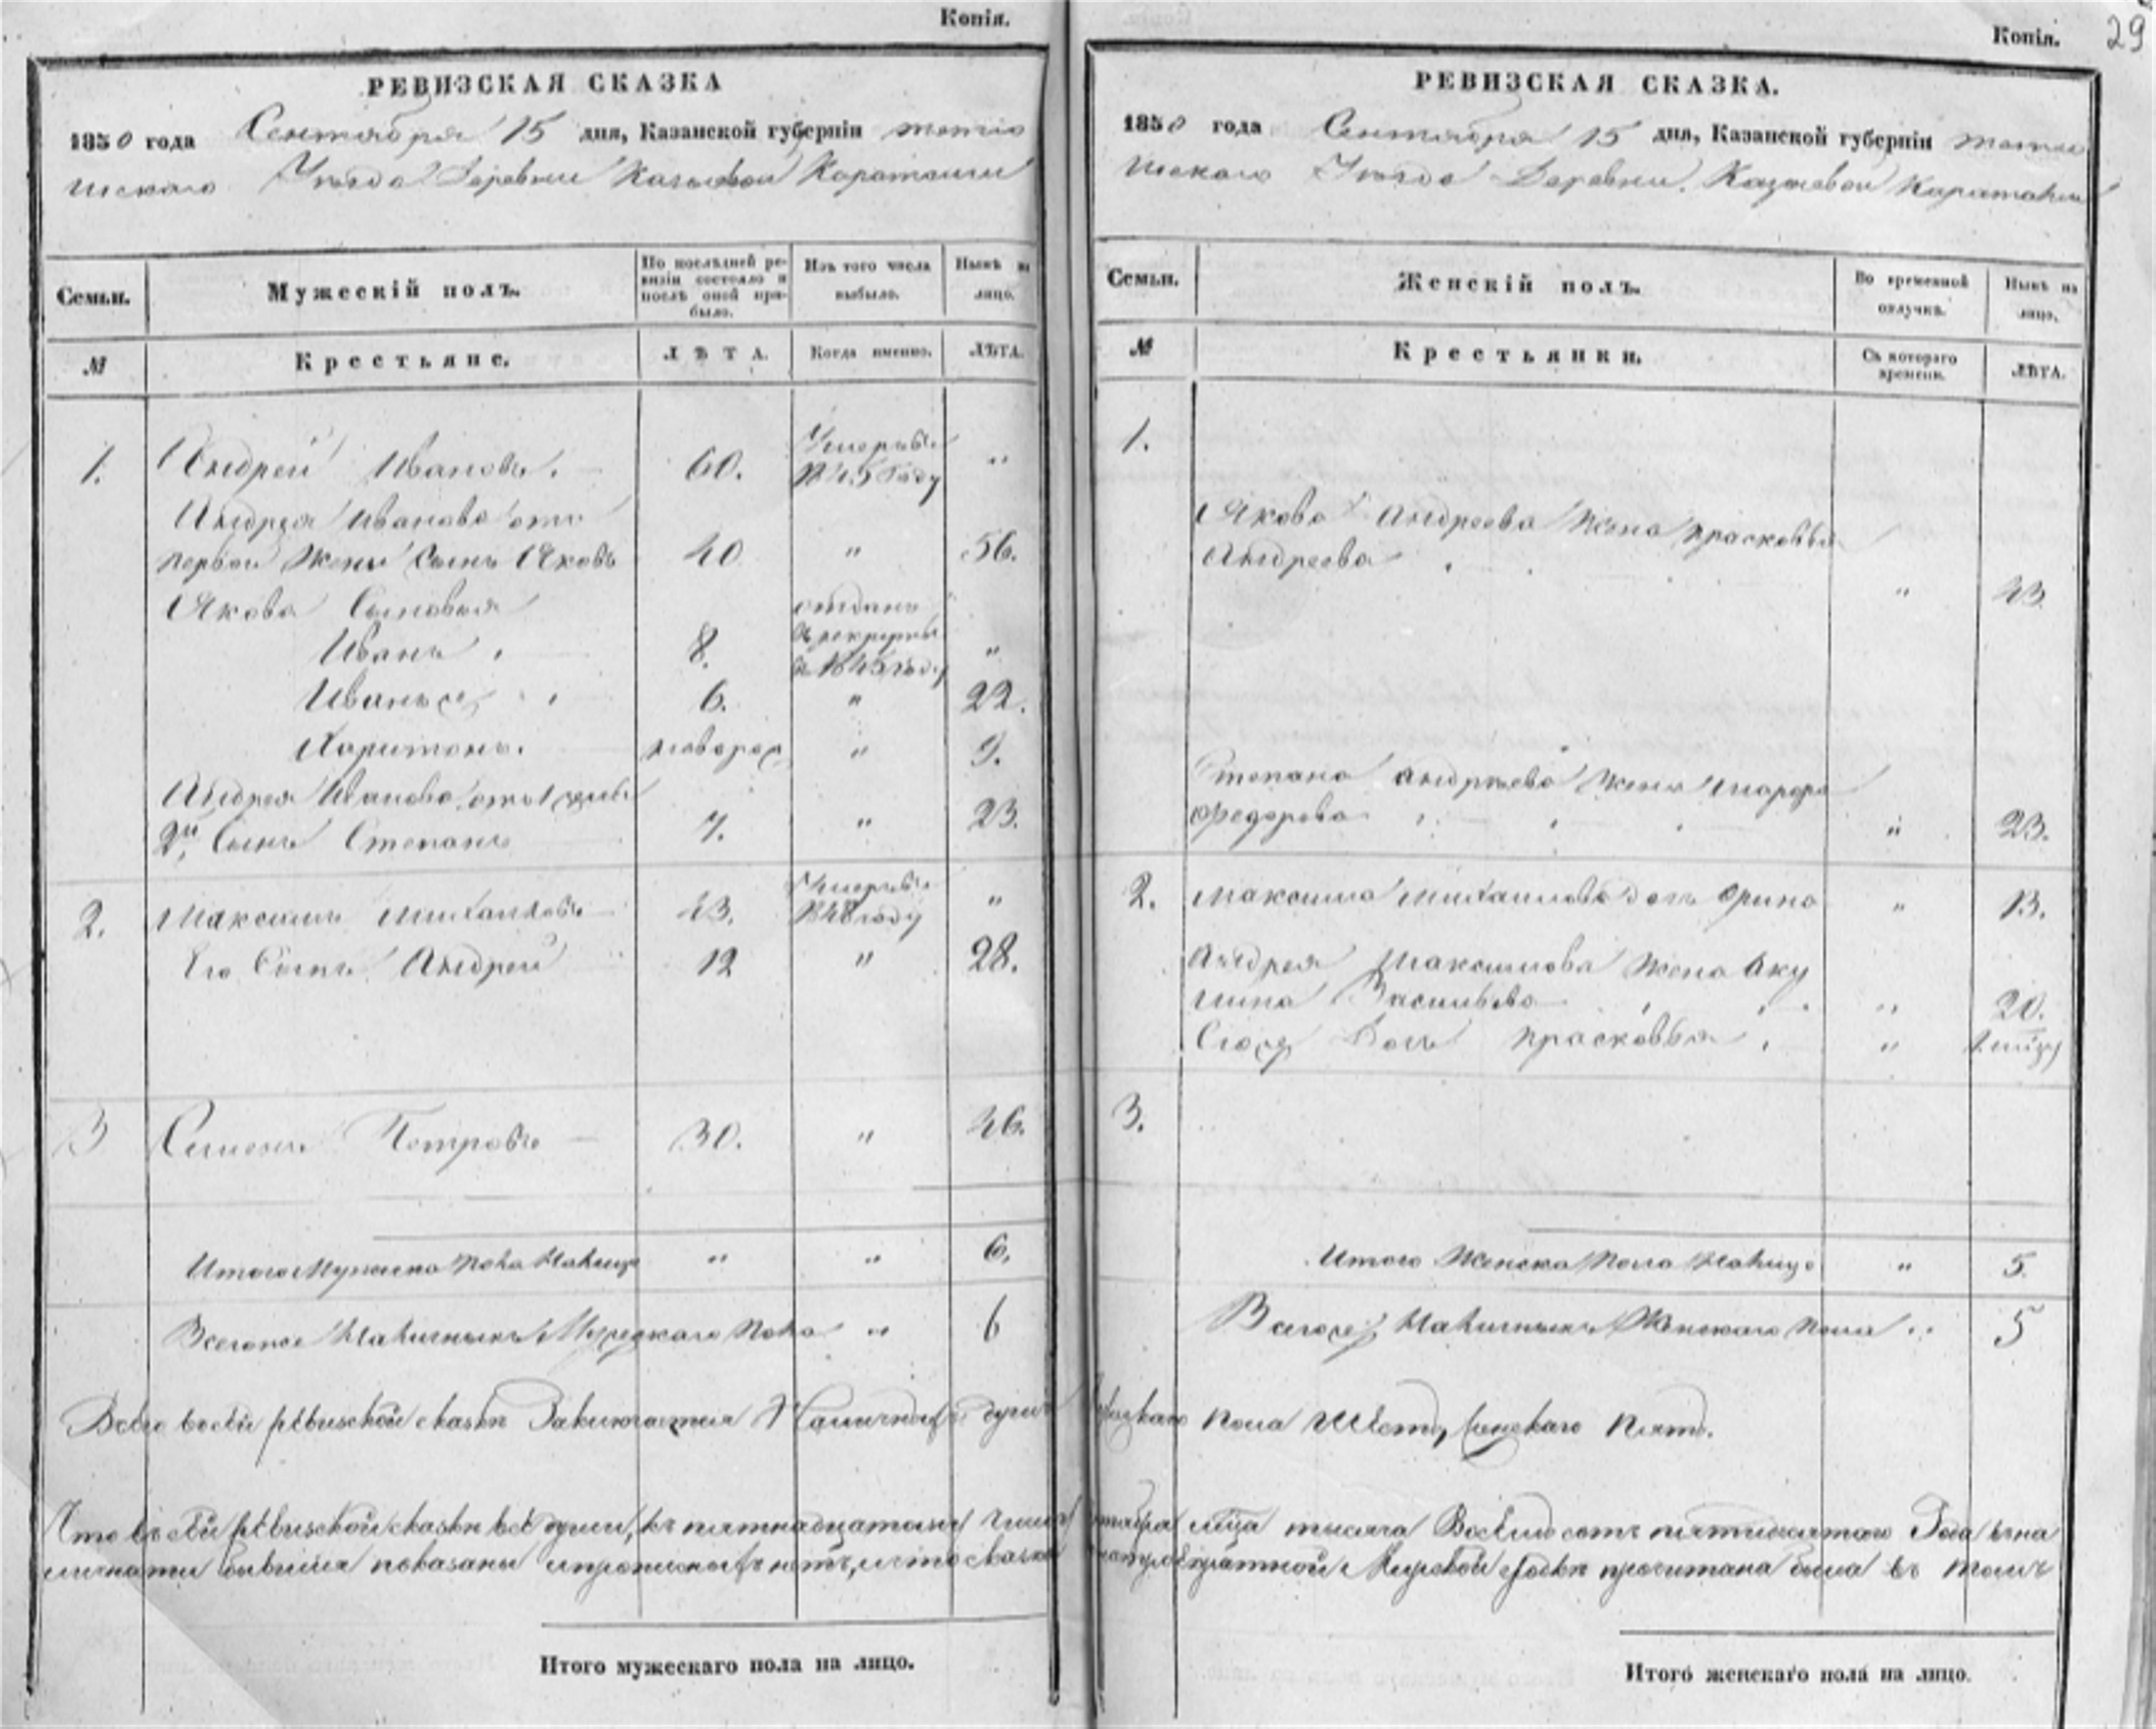 Копія.
РЕВИЗСКАЯ СКАЗКА
1850 года Сентября 15 дня, Казанской губерніи
Уезда Деревни Казыевой Караташи
Семьи. Мужескій полъ. По послѣдней ревизіи состояло и послѣ оной прибыло. Изъ того числа выбыло. Нынѣ на лицо.
№ Крестьяне. ЛѢТА. Когда именно. ЛѢТА.
1. Андрей Ивановъ. 60. Умеръ въ 1845 году "
Андрея Иванова отъ
первой жены Сынъ Яковъ 40 " 56.
Якова Сыновья отданъ
Иванъ 8. в рекруты в 1845 году "
Иванъ же 6. " 22.
Харитонъ. новорож " 9.
Андрея Иванова отъ
2й Сынъ Степанъ 7. " 23.
2. Максимъ Михайловъ 43. Умеръ в 1848 году "
Его Сынъ Андрей 12 " 28.
3 Семенъ Петровъ 30. " 46.
Итого Мужска пола Налицо " " 6.
Всего же Наличныхъ Мужескаго пола " 6
Всего въ сей ревизской сказке Заключается Наличныхъ душъ
Что въ сей ревизской сказке все души, къ пятнадцатому числу
показаны и прописныхъ нетъ, и что сказка
Итого мужескаго пола на лицо.
Копія. 29
РЕВИЗСКАЯ СКАЗКА.
1850 года Сентября 15 дня, Казанской губерніи
Уезда Деревни Казыевой Караташи
Семьи. Женскій полъ. Во временной отлучкѣ. Нынѣ на лицо.
№ Крестьянки. Съ котораго времени. ЛѢТА.
1.
Якова Андреева жена Прасковья
Андреева " 43
Степана Андреева жена
Федорова " 23.
2. Максима Михайлова дочь Орина " 13.
Андрея Максимова жена Аку
лина Васильева " 20.
Ево же Дочь Прасковья "
3.
Итого Женска Пола Налицо " 5.
Всего же Наличныхъ Женскаго пола " 5
мужскаго пола Шесть, женскаго Пять.
сентября м-ца тысяча Восемь сотъ пятидесятаго Года
Мирской сходке прочитана была въ томъ
Итого женскаго пола на лицо.